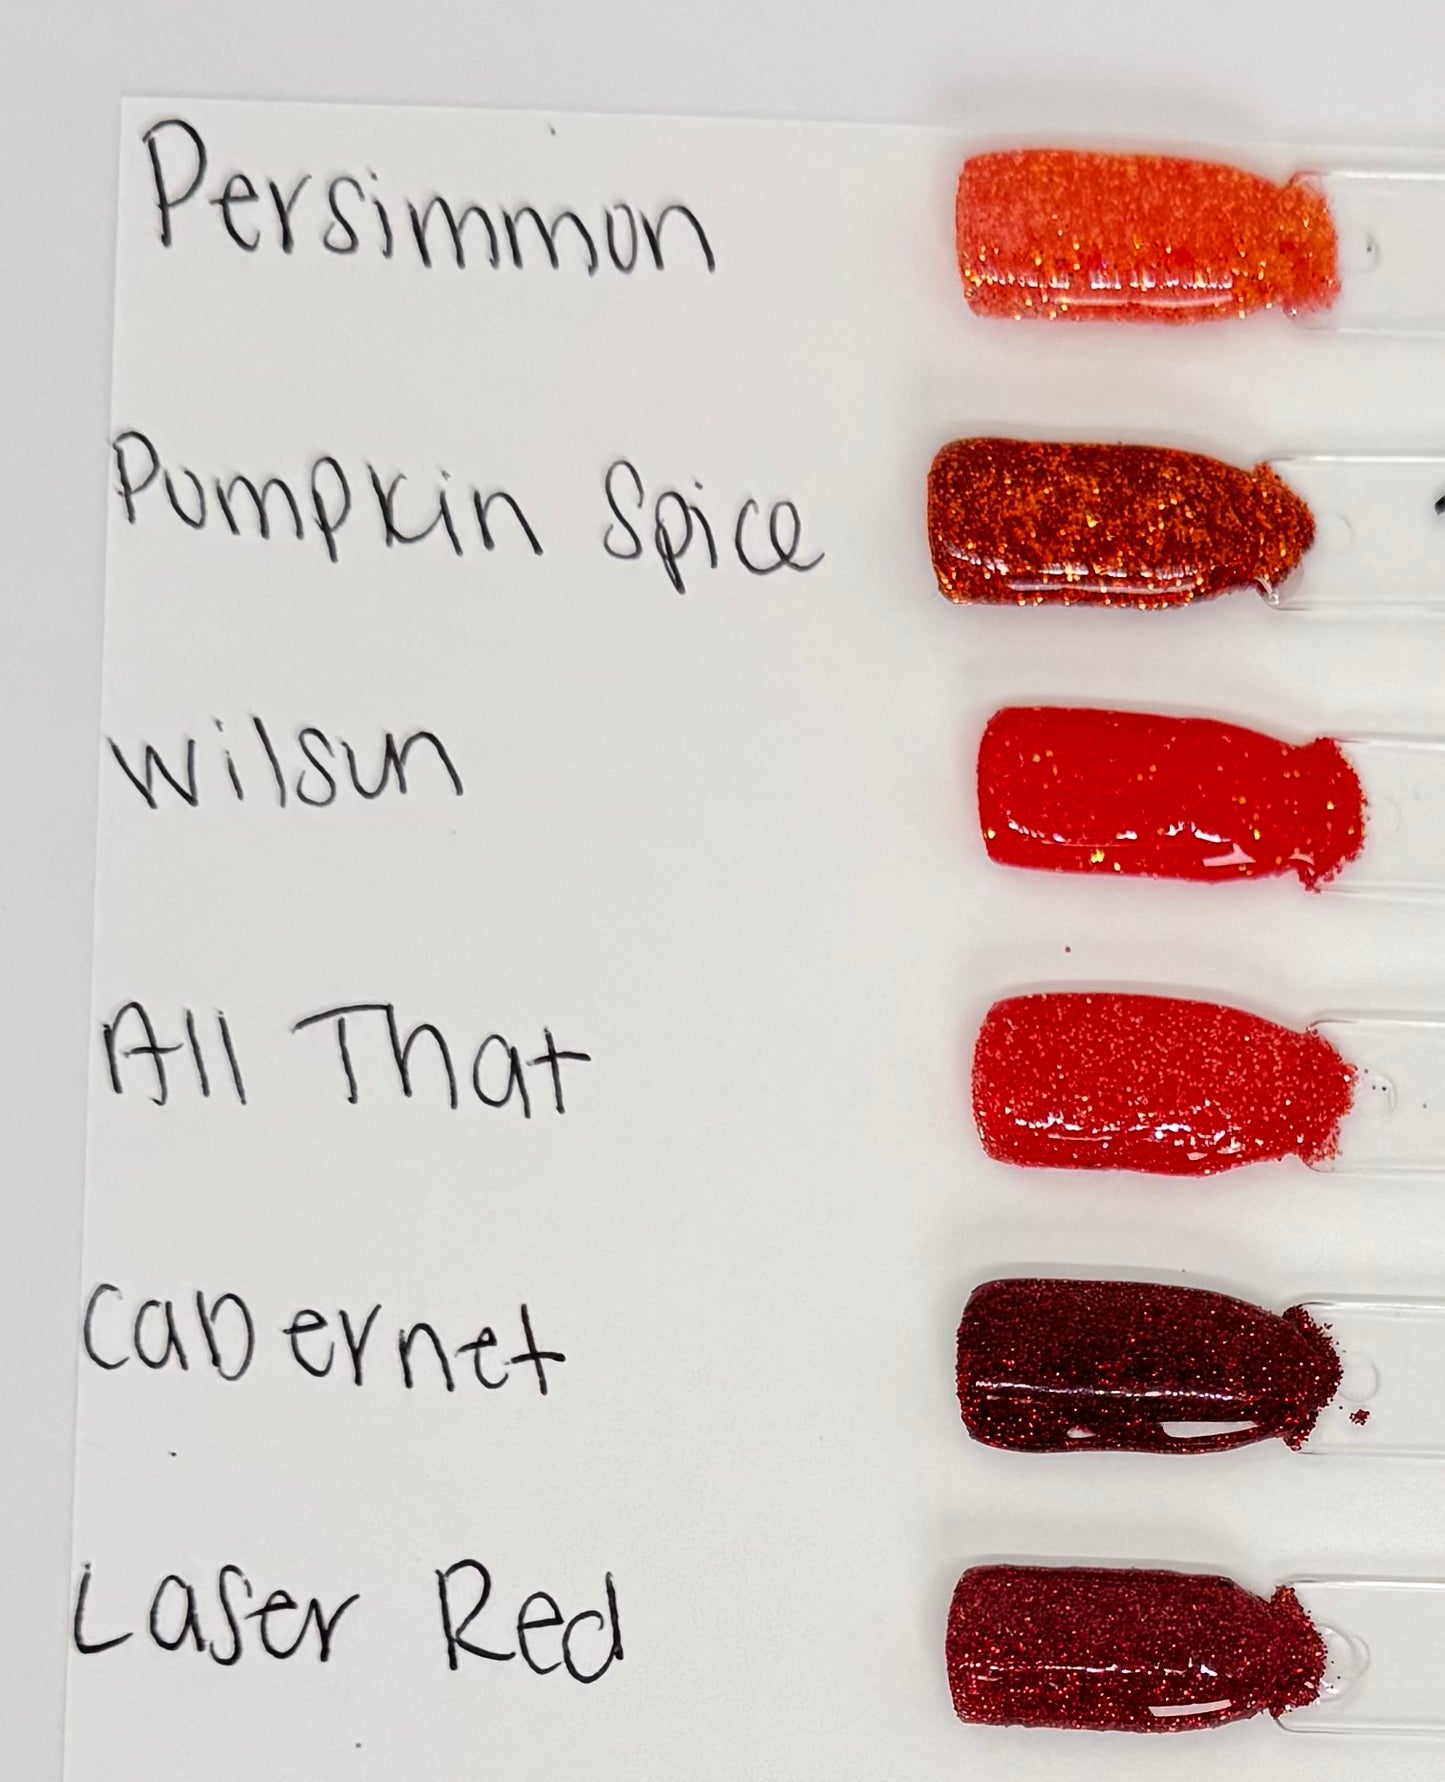 Persimmon
Pumpkin Spice
Wilson
All That
Cabernet
Laser Red